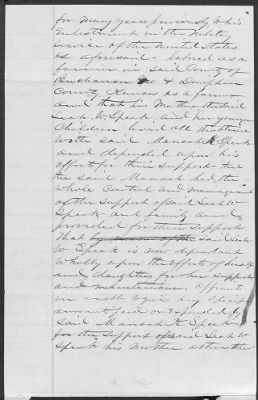 for many years previously to his
enlistment in the Military
service of the United States
as aforesaid labored as a
farmer in said County of
Buchanan Mo & Doniphan
County, Kansas as a farmer
and that his Mother the said
Leah W Speak and her young
Children lived all that time
with the said Manoah K Speak
and depended upon his
effort for their support that
the said Manoah had the
whole Control and management
of the support of said Leah W
Speak and family and
provided for their support
That the said Leah
W Speak is now dependent
wholly upon the effort of his
and daughters for her support
and maintenance affiant
is unable to give any specific
amount paid or expended by
said Manoah K Speak
for the support of said Leah W
Speak his Mother other than